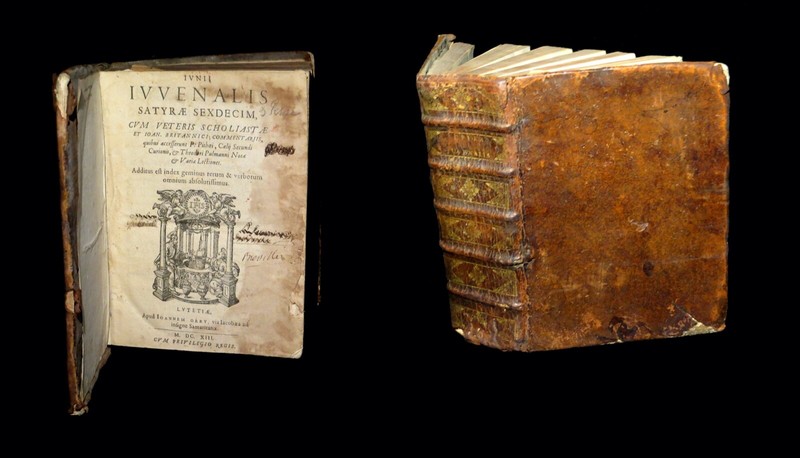 IVNII
IVVENALIS
SATYRÆ SEXDECIM,
CVM VETERIS SCHOLIASTÆ
ET IOAN. BRITANNICI, COMMENTARIIS,
quibus accesserunt P. Pithœi, Cælij Secundi
Curionis, & Theodori Pulmanni Notæ
& Variæ Lectiones.
Additus est index geminus rerum & verborum
omnium absolutissimus.
IHS
LVTETIÆ,
Apud IOANNEM
insigne Samaritanæ.
M. DC. XIII.
CVM PRIVILEGIO REGIS.